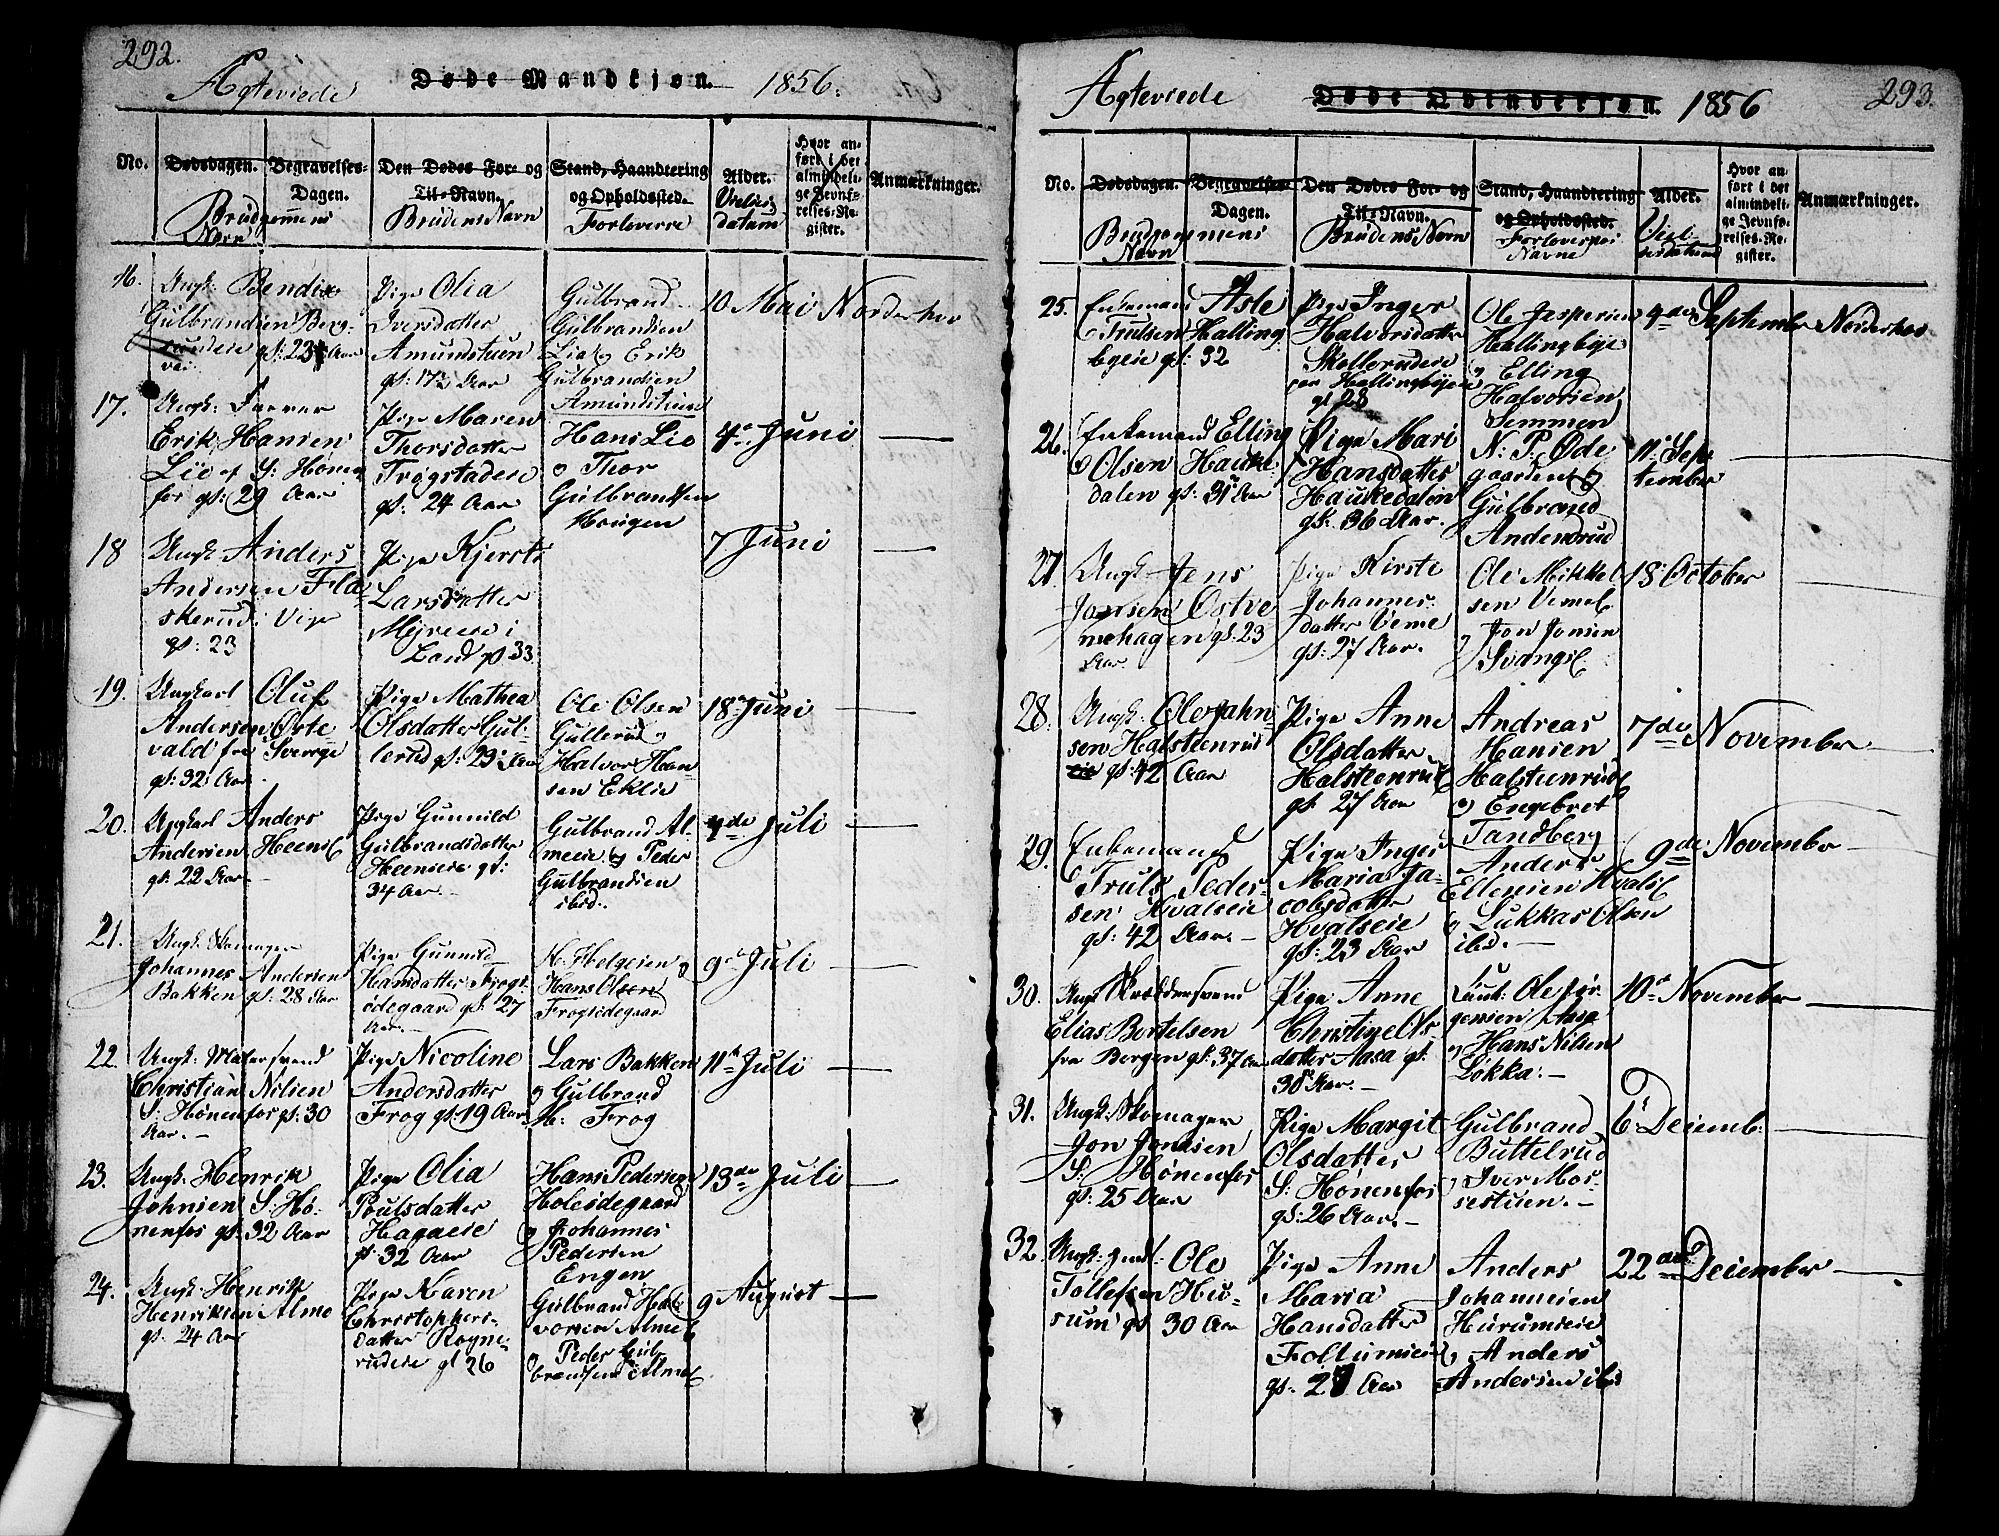 292.
Ægteviede
Døde Mandkjøn.
1856.
No.
Dødsdagen.
Begravelses-
Dagen.
Den Dødes For- og
Til-Navn.
Stand, Haandtering
og Opholdssted.
Alder.
Hvor an-
ført i det
almindeli-
ge Jevnfø-
relses-Re-
gister.
Anmærkninger.
Brudgommens
Navn
Brudens Navn
Forloverre
Vielses
datum
16.
Ungk: Bendix
Gulbrandsen Berg-
gl: 23 Aar
Pige Olia
Iversdatter
Amundstuen
gl: 17½ Aar
Gulbrand
Gulbrandsen
Lia og Erik
Gulbrandsen
Amundstuen
10. Mai
Norderhov
17.
Ungk: Farver
Erik Hansen
Lie af S: Hønen
fos gl: 29 Aar
Pige Maren
Thorsdatter
Trøgstadeie
gl: 24 Aar
Hans Lie
og Thor
Gulbrandsen
Hougen
4de Juni
18
Ungk: Anders
Andersen Fla-
skerud: Viger
gl: 23
Pige Kjersti
Larsdatter
Myreeie i
Land gl 33
7 Juni
19.
Ungkarl Oluf
Andersen Øste
vald fra Sverrge
gl: 32 Aar
Pige Mathea
Olsdatter Gul-
lerud gl: 23 Aar
Ole Olsen
Gullerud og
Halvor Han
sen Eklie
18de Juni
20.
Ungkarl Anders
Andersen Heens
gl: 22 Aar.
Pige Gunnild
Gulbrandsdatter
Heenseie gl:
34 Aar.
Gulbrand Al-
meeie og Peder
Gulbrandsen
ibid.
4de Juli
21.
Ungk: Skomager
Johannes Andersen
Bakken gl: 28 Aar
Pige Gunnild
Hansdatter Frogs
ødegaard gl: 27
Aar.
H. Helgesen og
Hans Olsen
Frogsødegaard
9de Juli
22.
Ungk: Malersvend
Christian Nilsen
S: Hønenfos gl: 30
Aar.
Pige Nicoline
Andersdatter
Frog gl: 19 Aar
Lars Bakken
og Gulbrand
M: Frog
11te Juli
23.
Ungk: Henrik
Johnsen S: Hø-
nenfos gl: 32 Aar
Pige Olia
Poulsdatter
Hagaeie
gl: 32 Aar
Hans Pedersen
Holesødegaard
og Johannes
Pedersen
Engen
13de Juli
24.
Ungk: Henrik
Henriksen Alme
gl: 24 Aar
Pige Karen
Christophers-
datter Rogne-
rudeie gl 26
Gulbrand Hal
vorsen Alme
og Peder Gul-
brandsen Alme
9 August
293.
Ægteviede
Døde Qvindekjøn.
1856
No.
Dødsdagen.
Begravelses-
Dagen.
Den Dødes For- og
Til-Navn.
Stand, Haandtering
og Opholdssted.
Alder.
Hvor an-
ført i det
almindeli-
ge Jevnfø-
relses-Re-
gister.
Anmærkninger.
Brudgommens
Navn
Brudens Navn
Navne
25.
Enkemand Asle
Trulsen Halling
byeie gl: 32
Pige Inger
Halvorsdatter
Skollerudeie
gl 28
Ole Jespersen
Hallingbye
og Elling
Halvorsen
Semmen
4de September
Norderhov
26.
Enkemand Elling
Olsen Hauke
dalen gl: 31 Aar
Pige Mari
Hansdatter
Haukedalen
gl: 36 Aar.
N. P. Øde
gaarden og
Gulbrand
Andersrud
11 Sep
tember
27
Ungk: Jens
Jonsen Østve
mehagen gl: 23
Aar.
Pige Kirsti
Johannes
datter Veme
gl: 27 Aar.
Ole Mikkel
sen Veme
og Jon Jonsen
Svangs
18 October
28.
Ungk: Ole Jahn-
sen Halsteenrud
gl: 42 Aar
Pige Anne
Olsdatter
Halsteenrud
gl: 27 Aar
Andreas
Hansen
Halsteenrud
og Engebret
Tandberg
7de November
29.
Enkemand
Truls Peder-
sen Hvalseie
gl: 42 Aar.
Pige Inger
Maria Ja-
cobsdatter
Hvalseie
gl: 23 Aar
Anders
Ellensen Hvals
og Lukkas Olsen
ibd.
9de November
30.
Ungk Skræddersvend
Elias Bertelsen
fra Bergen gl: 37 Aar
Pige Anne
Christine Ols
datter Aasa gl:
38 Aar.
Ole Jør-
gensen Aasa
og Hans Nilsen
Løkka.
10de November
31.
Ungk: Skomager
Jon Jonsen
S: Hønenfos
gl: 25 Aar
Pige Margit
Olsdatter
S: Hønenfos
gl: 26 Aar.
Gulbrand
Buttelrud
og Iver Mos-
sestuen.
6te Desemb.
32.
Ole
Tollefsen Hu-
rum gl 30 Aar
Pige Anne
Maria
Hansdatter
Follumseie
gl. 27 Aar
Anders
Johannesen
Hurumseie
og Anders
Andersen ibd
22de Desember